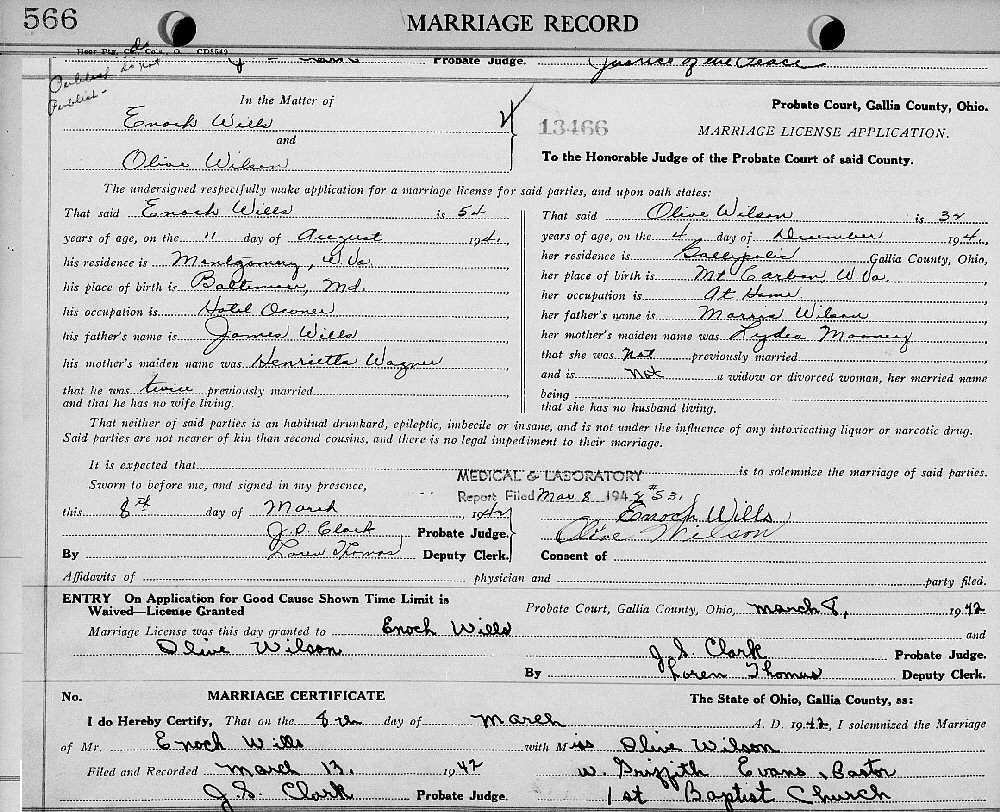 566
MARRIAGE RECORD
Probate Judge. Justice of the Peace
do not
Publish-
In the Matter of
Enoch Wills
and
Olive Wilson
13466
Probate Court, Gallia County, Ohio.
MARRIAGE LICENSE APPLICATION.
To the Honorable Judge of the Probate Court of said County.
The undersigned respectfully make application for a marriage license for said parties, and upon oath states:
That said Enoch Wills is 54
years of age, on the 11 day of August 194
his residence is Montgomery, W. Va.
his place of birth is Baltimore, Md.
his occupation is Hotel Owner
his father's name is James Wills
his mother's maiden name was Henrietta Wagner
that he was twice previously married
and that he has no wife living.
That said Olive Wilson is 32
years of age, on the 4 day of December 194
her residence is Gallipolis Gallia County, Ohio,
her place of birth is Mt Carbon, W Va.
her occupation is At Home
her father's name is Morris Wilson
her mother's maiden name was Lydia Mooney
that she was Not previously married
and is Not a widow or divorced woman, her married name
being
that she has no husband living.
That neither of said parties is an habitual drunkard, epileptic, imbecile or insane, and is not under the influence of any intoxicating liquor or narcotic drug.
Said parties are not nearer of kin than second cousins, and there is no legal impediment to their marriage.
It is expected that is to solemnize the marriage of said parties.
MEDICAL & LABORATORY
Report Filed Mar 8 1942 #53.
Sworn to before me, and signed in my presence,
this 8th day of March 1942
J.S. Clark Probate Judge.
By Loren Thomas Deputy Clerk.
Enoch Wills
Olive Wilson
Consent of
Affidavits of physician and party filed.
ENTRY On Application for Good Cause Shown Time Limit is
Waived—License Granted
Probate Court, Gallia County, Ohio, March 8, 1942
Marriage License was this day granted to Enoch Wills and
Olive Wilson
J. S. Clark Probate Judge.
By Loren Thomas Deputy Clerk.
No. MARRIAGE CERTIFICATE The State of Ohio, Gallia County, ss:
I do Hereby Certify, That on the 8th day of March A. D. 1942, I solemnized the Marriage
of Mr. Enoch Wills with Miss Olive Wilson
Filed and Recorded March 13, 1942 W. Griffith Evans, Pastor
J. S. Clark Probate Judge. 1st Baptist Church